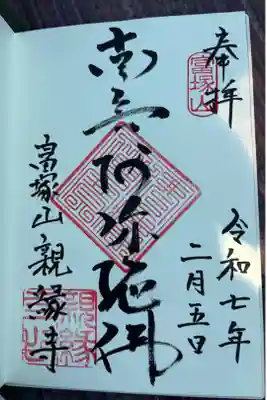 奉拝
富塚山
令和七年
二月五日
南無阿弥陀佛
富塚山親縁寺